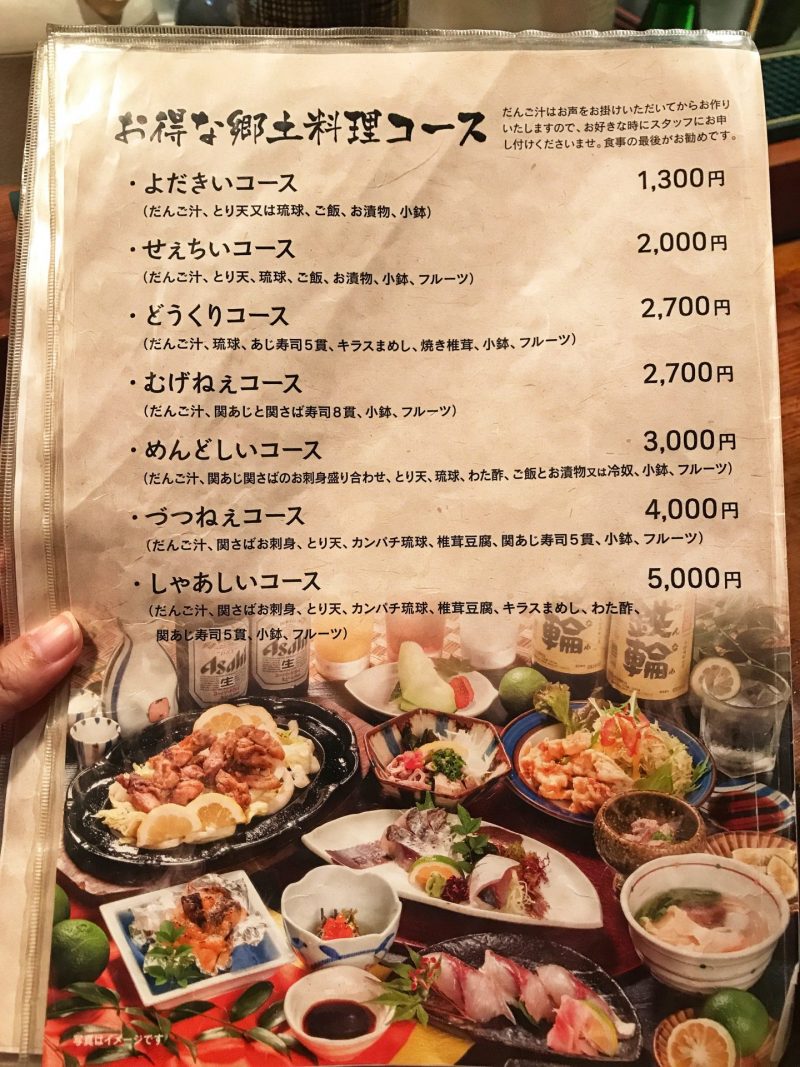 お得な郷土料理コース
だんご汁はお声をお掛けいただいてからお作り
いたしますので、お好きな時にスタッフにお申
し付けくださいませ。食事の最後がお勧めです。
・よだきいコース 1,300円
(だんご汁、とり天又は琉球、ご飯、お漬物、小鉢)
・せぇちいコース 2,000円
(だんご汁、とり天、琉球、ご飯、お漬物、小鉢、フルーツ)
・どうくりコース 2,700円
(だんご汁、琉球、あじ寿司5貫、キラスまめし、焼き椎茸、小鉢、フルーツ)
・むげねぇコース 2,700円
(だんご汁、関あじと関さば寿司8貫、小鉢、フルーツ)
・めんどしいコース 3,000円
(だんご汁、関あじ関さばのお刺身盛り合わせ、とり天、琉球、わた酢、ご飯とお漬物又は冷奴、小鉢、フルーツ)
・づつねぇコース 4,000円
(だんご汁、関さばお刺身、とり天、カンパチ琉球、椎茸豆腐、関あじ寿司5貫、小鉢、フルーツ)
・しゃあしいコース 5,000円
(だんご汁、関さばお刺身、とり天、カンパチ琉球、椎茸豆腐、キラスまめし、わた酢、
関あじ寿司5貫、小鉢、フルーツ)
Asahi
生
Asahi
生
輪
輪
写真はイメージです